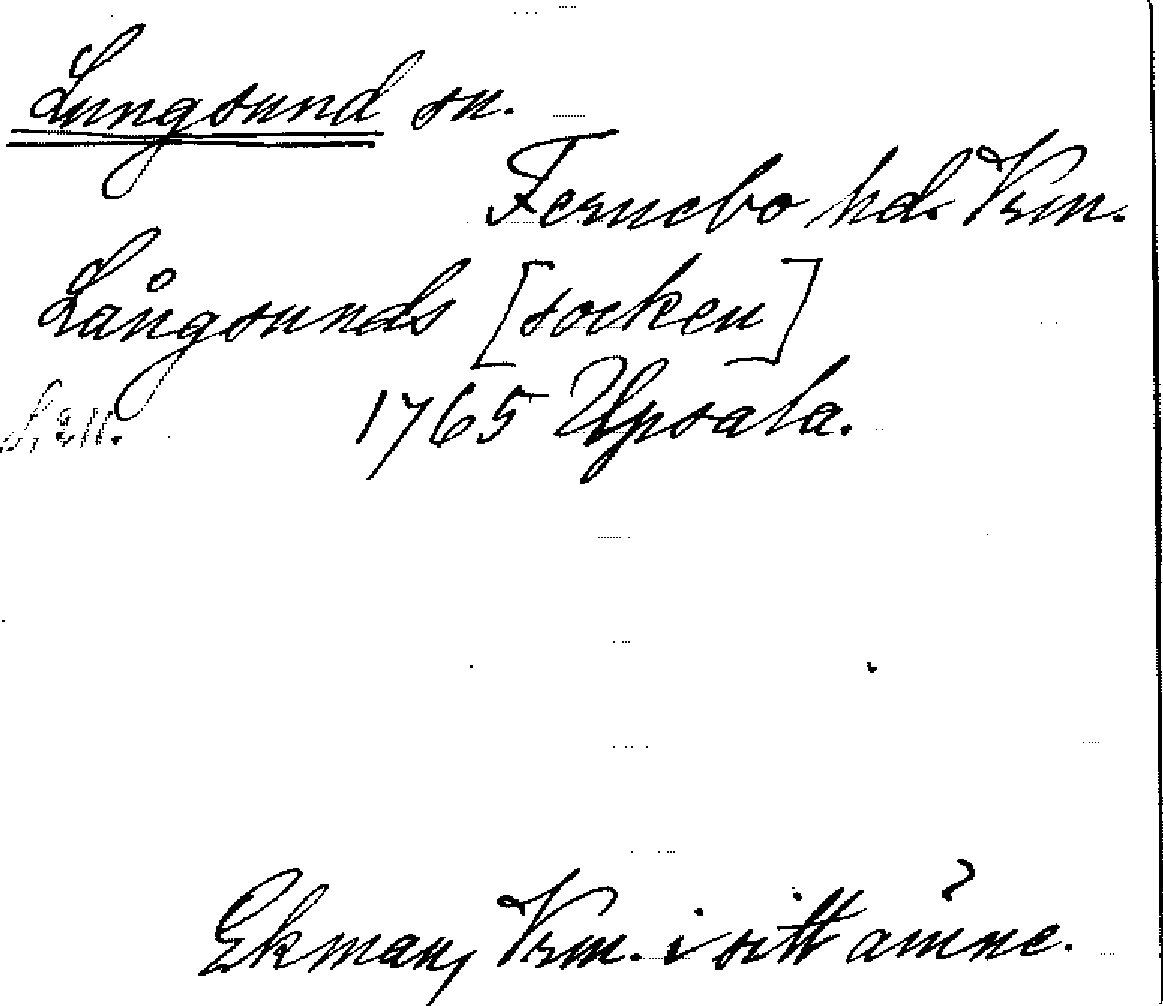 Lungsund sn.
Fernebo hd. Vrm.
Långsunds [socken]
1765 Upsala.
Ekman, Vrm. i sitt ämne.